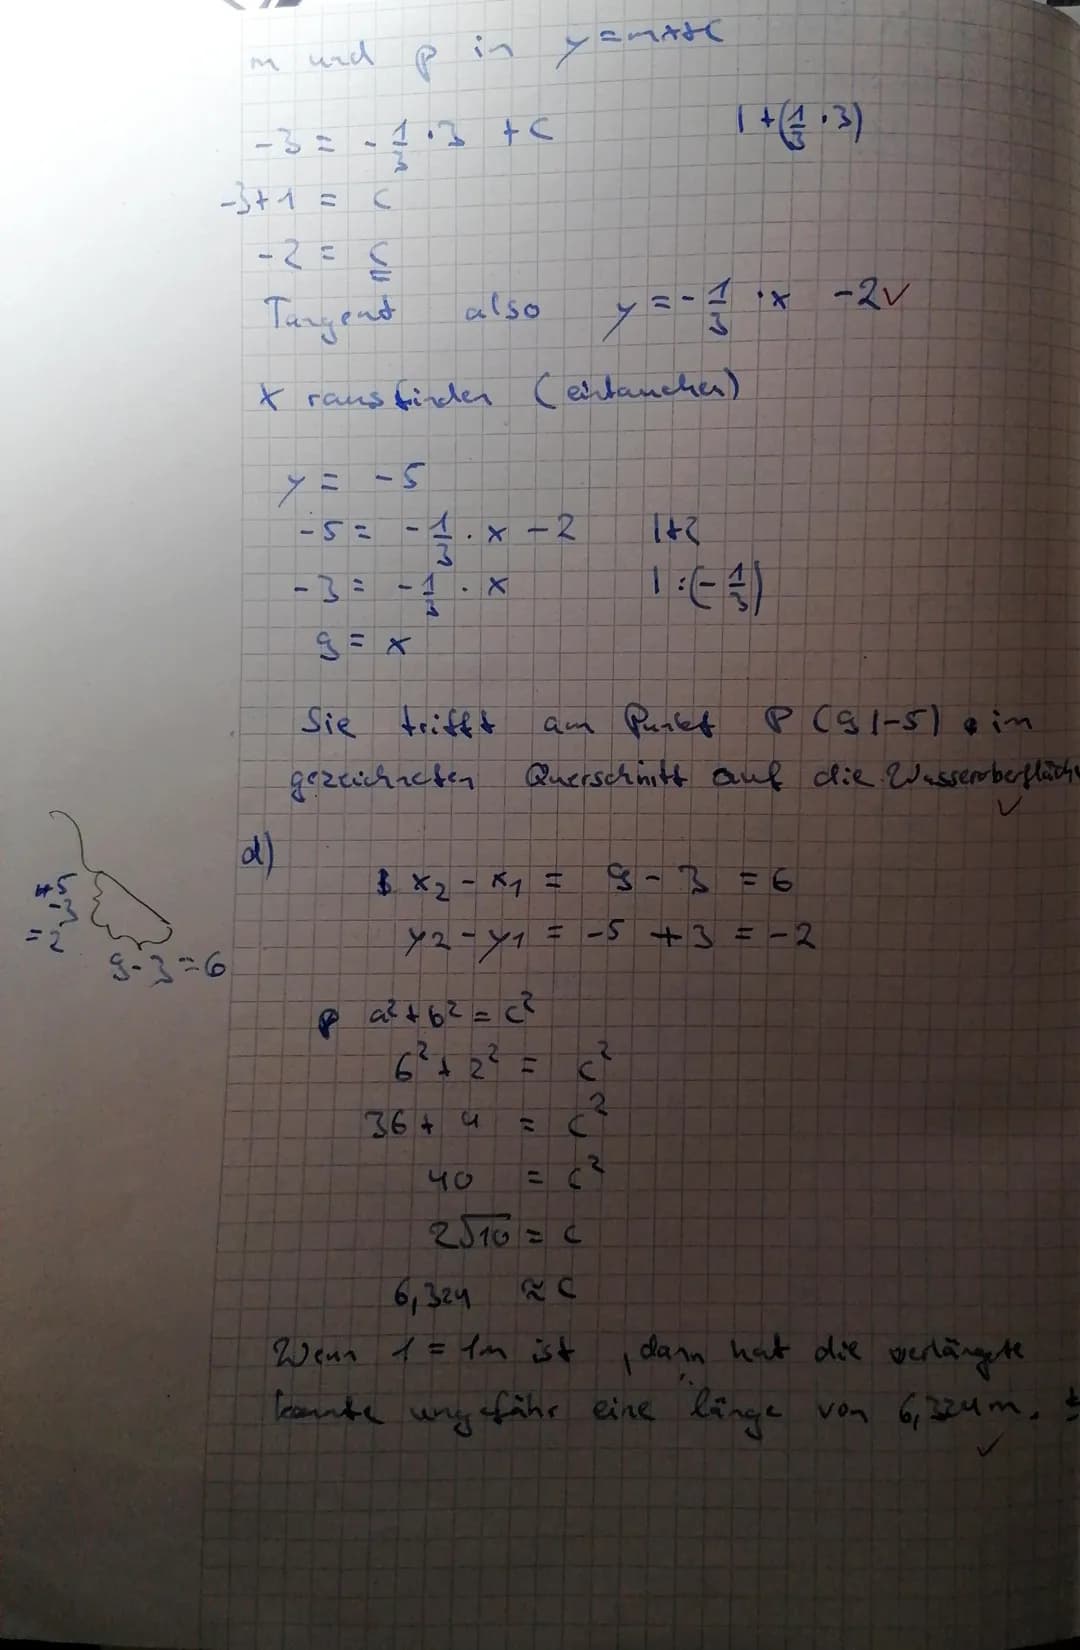 m und P in y=mx+c
-3 = -1/3 · 3 + c |+(1/3 · 3)
-3+1 = c
-2 = c
Tangent also y = -1/3 · x -2 ✓
x rausfinden (eintauchen)
y = -5
-5 = -1/3 · x - 2 |+2
-3 = -1/3 · x |:(-1/3)
9 = x
Sie trifft am Punkt P (9|-5) im
gezeichneten Querschnitt auf die Wasseroberfläche
✓
d)
x₂ - x₁ = 9 - 3 = 6
y₂ - y₁ = -5 + 3 = -2
+5
-3
=2
9-3=6
a² + b² = c²
6² + 2² = c²
36 + 4 = c²
40 = c²
2√10 = c
6,324 ≈ c
Wenn 1 = 1m ist, dann hat die verlängerte
kante ungefähr eine länge von 6,324m.
✓